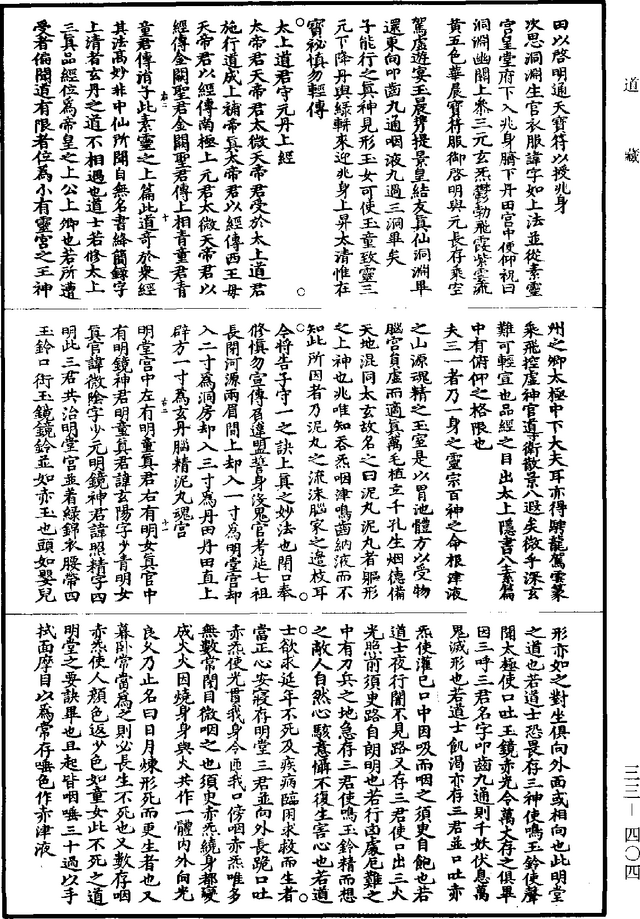 道藏
田以啓明通天寶符以授兆身
次思洞淵生官衣服諱字如上法並從素靈
宮皇堂府下入兆身臍下丹田宮中便仰祝曰
洞淵幽關上參三元玄炁鬱勃飛霞紫雲流
黃五色華晨寶符服御啓明與元長存乘空
駕虛遊宴玉晨携提景皇結友真仙洞淵畢
還東向叩齒九通咽液九過三洞畢矣
子能行之真神見形玉女可使玉童致靈三
元下降丹輿綠軿來迎兆身上昇太清惟在
寶祕慎勿輕傳
太上道君守元丹上經
太帝君天帝君太微天帝君受於太上道君
施行道成上補帝真太帝君以經傳西王母
天帝君以經傳南極上元君太微天帝君以
經傳金闕聖君金闕聖君傳上相青童君青
童君傳涓子此素靈之上篇此道奇於衆經
其法高妙非中仙所聞自無名書絳簡錄字
上清者玄丹之道不相遇也道士若修太上
三真品經位爲帝皇之上公上卿也若所遭
受者偏聞道有限者位爲小有靈宮之王神
州之卿太極中下大夫耳亦得騁龍駕雲篆
乘飛控虛神官導衛散景八遐矣微乎深玄
難可輕宣也品經之目出太上隱書八素篇
中有俯仰之格限也
夫三一者乃一身之靈宗百神之命根津液
之山源魂精之玉室是以胃池體方以受物
腦宮員虛而適真萬毛植立千孔生烟德備
天地混同太玄故名之曰泥丸泥丸者軀形
之上神也兆唯知吞炁咽津鳴齒納液而不
知此所因者乃泥丸之流沫腦家之邊枝耳
今將告子守一之訣上真之妙法也閉口奉
修慎勿宣傳有違盟誓身沒鬼官考延七祖
長閉河源兩眉間上却入一寸爲明堂宮却
入二寸爲洞房却入三寸爲丹田丹田直上
辟方一寸爲玄丹腦精泥丸魂宮
明堂宮中左有明童真君右有明女真官中
有明鏡神君明童真君諱玄陽字少青明女
真官諱微陰字少元明鏡神君諱照精字四
明此三君共治明堂宮並着綠錦衣腰帶四
玉鈴口銜玉鏡鏡鈴並如赤玉也頭如嬰兒
形亦如之對坐俱向外面或相向也此明堂
之道也若道士恐畏存三神使鳴玉鈴使聲
聞太極使口吐玉鏡赤光令萬丈存之俱畢
因三呼三君名字叩齒九通則千妖伏息萬
鬼滅形也若道士飢渴亦存三君並口吐赤
炁使灌己口中因吸而咽之須臾自飽也若
道士夜行闇不見路又存三君使口出三火
光照前須臾路自朗明也若行凶處厄難之
中有刀兵之地急存三君使鳴玉鈴精而想
之敵人自然心駭意懾不復生害心也若道
士欲求延年不死及疾病臨困求救而生者
當正心安寢存明堂三君並向外長跪口吐
赤炁使光貫我身令匝我口傍咽赤炁唯多
無數常閉目微咽之也須臾赤炁繞身都變
成火火因燒身身與火共作一體内外同光
良久乃止名曰日月煉形死而更生者也又
暮卧常當爲之則必長生不死也又數存咽
赤炁使人顏色返少色如童女此不死之道
明堂之要訣畢也旦起皆咽唾三十過以手
拭面摩目以爲常存唾色作赤津液
三三—四〇四